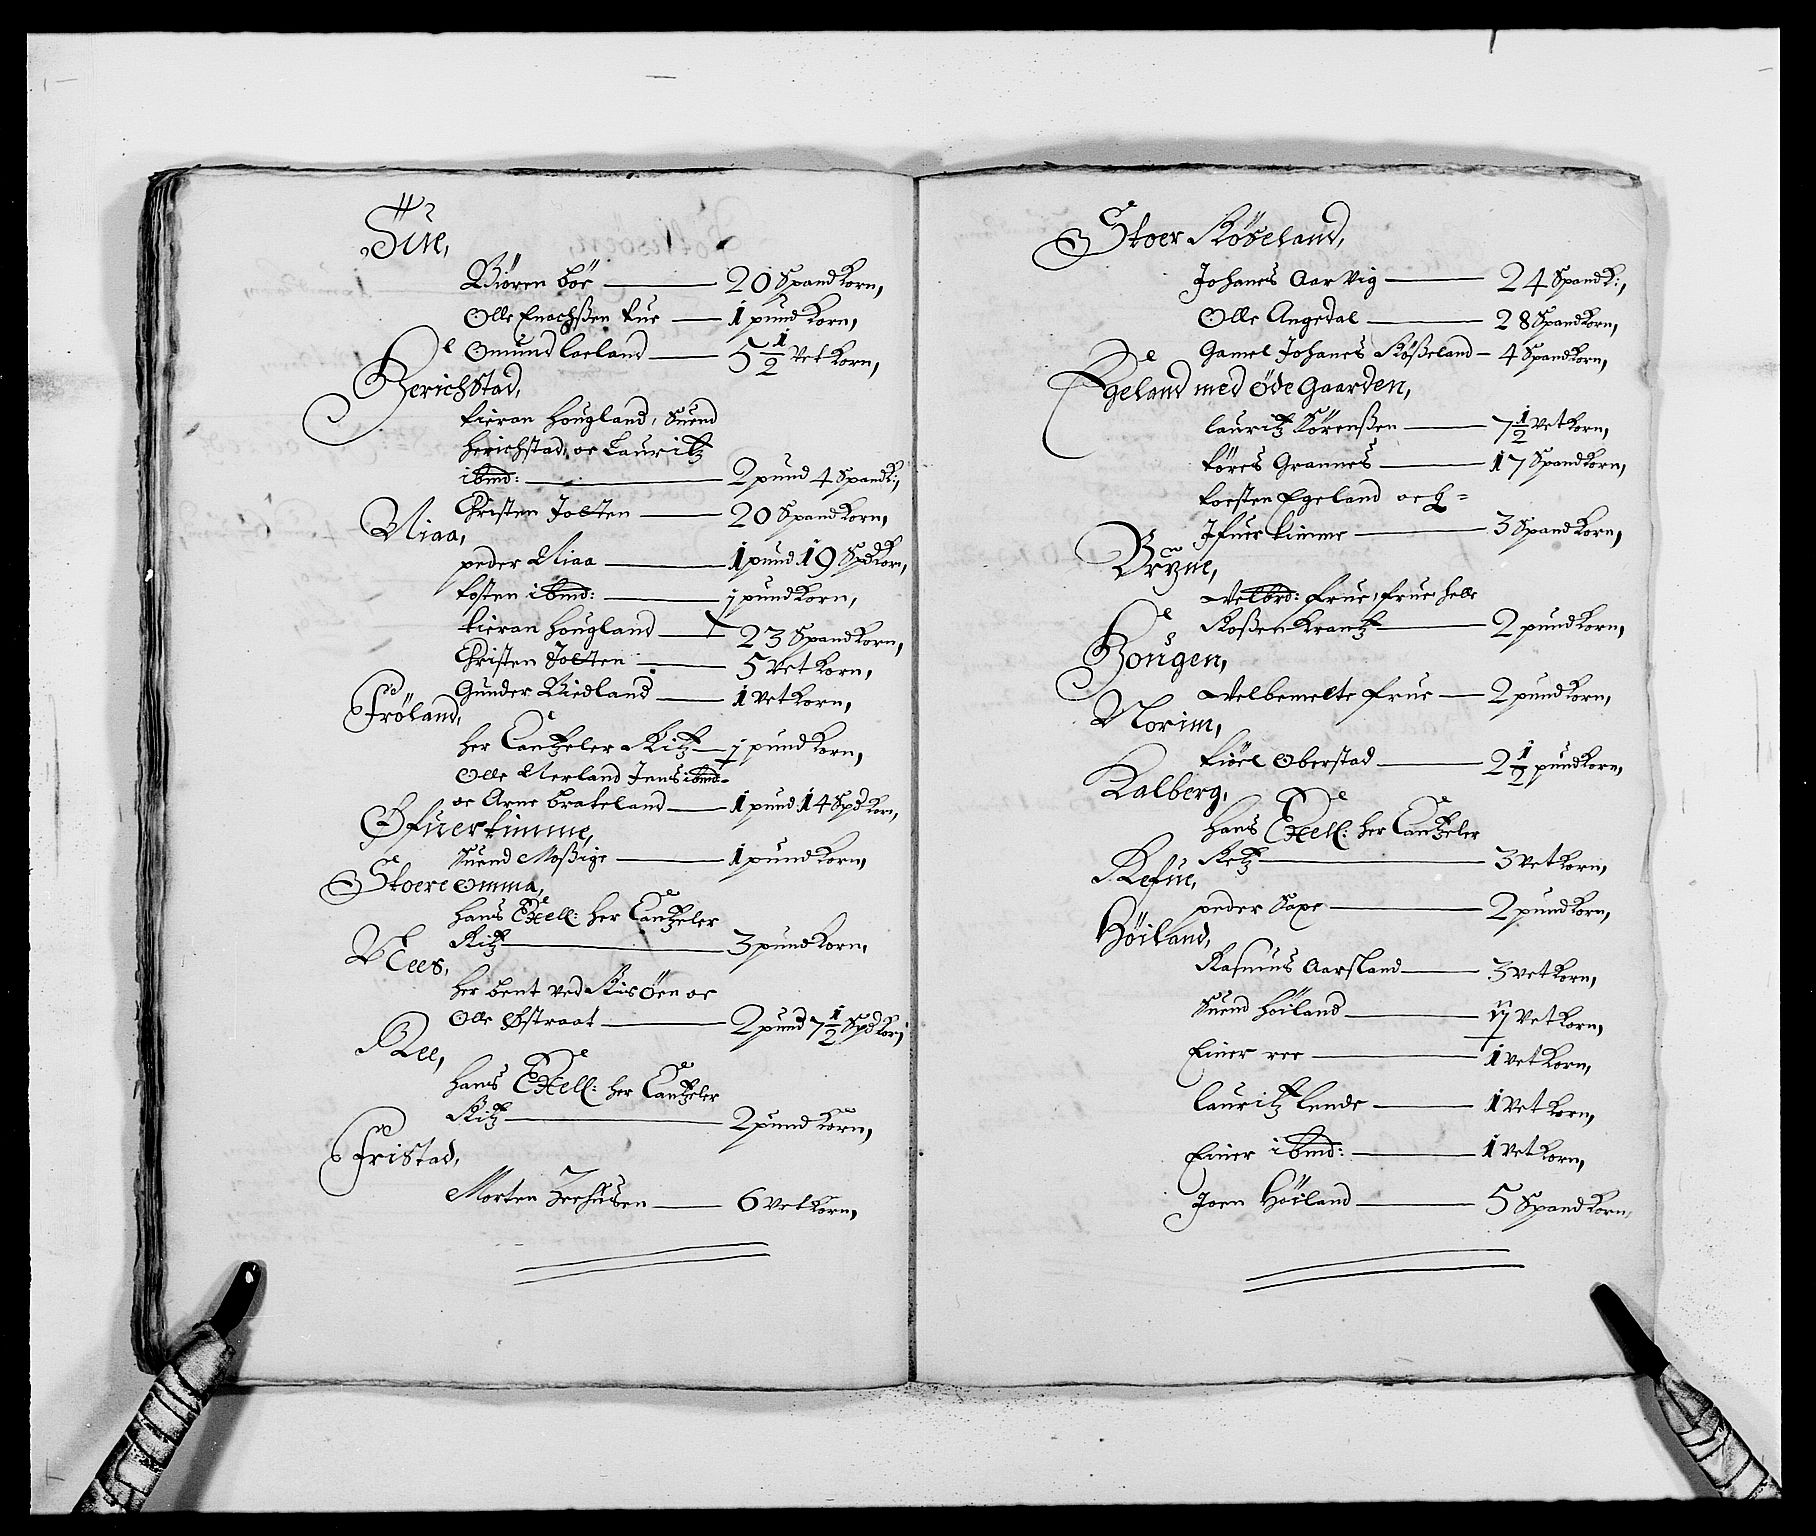 Tue,
Biøren bøe — 20 Spand Korn,
Olle Enochßen tue — 1 pund Korn,
Omund laeland — 5 1/2 Vet Korn,
Herichstad,
Kieran Hougland, Suend
herichstad, oc Lauritz
ibmd: — 2 pund 4 Spand K:,
Christen Jolten — 20 Spand Korn,
Niaa,
peder Niaa — 1 pund 19 Spd Korn,
tosten ibmd: — 1 pund Korn,
Kieran Hougland — 23 Spand Korn,
Christen Jolten — 5 Vet Korn,
Gunder Riedland — 1 Vet Korn,
Frøland,
her Cantzeler Ritz — 1 pund Korn,
Olle Nerland Jens ibmd
oc Arne brakeland — 1 pund 14 Spd Korn,
Øfuertimme,
Suend Moßige — 1 pund Korn,
Stoere Omma,
hans Exell: her Cantzeler
Ritz — 3 pund Korn,
Nees,
her bent ved Risöen oc
Olle Østraat — 2 pund 7 1/2 Spd Kor:
Ree,
hans Exell: her Cantzeler
Ritz — 2 pund Korn,
Fristad,
Morten Zeehusen — 6 Vet Korn,
Stoer Röseland,
Johanes Aarvig — 24 Spand K:,
Olle Angedal — 28 Spand Korn,
Gamel Johanes Rößeland — 4 Spand Korn,
Egeland med Öde Gaarden,
lauritz Sörenßen — 7 1/2 Vet Korn,
töres Grannes — 17 Spand Korn,
torsten Egeland oc
Jfuer timme — 3 Spand Korn,
Bryne,
Velbrd: frue, frue helle
Roßen Krantz — 2 pund Korn,
Hougen,
Velbemelte frue — 2 pund Korn,
Norim,
Kiöel Oberstad — 2 1/2 pund Korn,
Kalberg,
hans Exell: her Cantzeler
Retz — 3 Vet Korn,
Refue,
peder Saxe — 2 pund Korn,
Höiland,
Rasmus Aarsland — 3 Vet Korn,
Suend höiland — 7 Vet Korn,
Einer ree — 1 Vet Korn,
lauritz lende — 1 Vet Korn,
Einer ibmd: — 1 Vet Korn,
Joen Höiland — 5 Spand Korn,